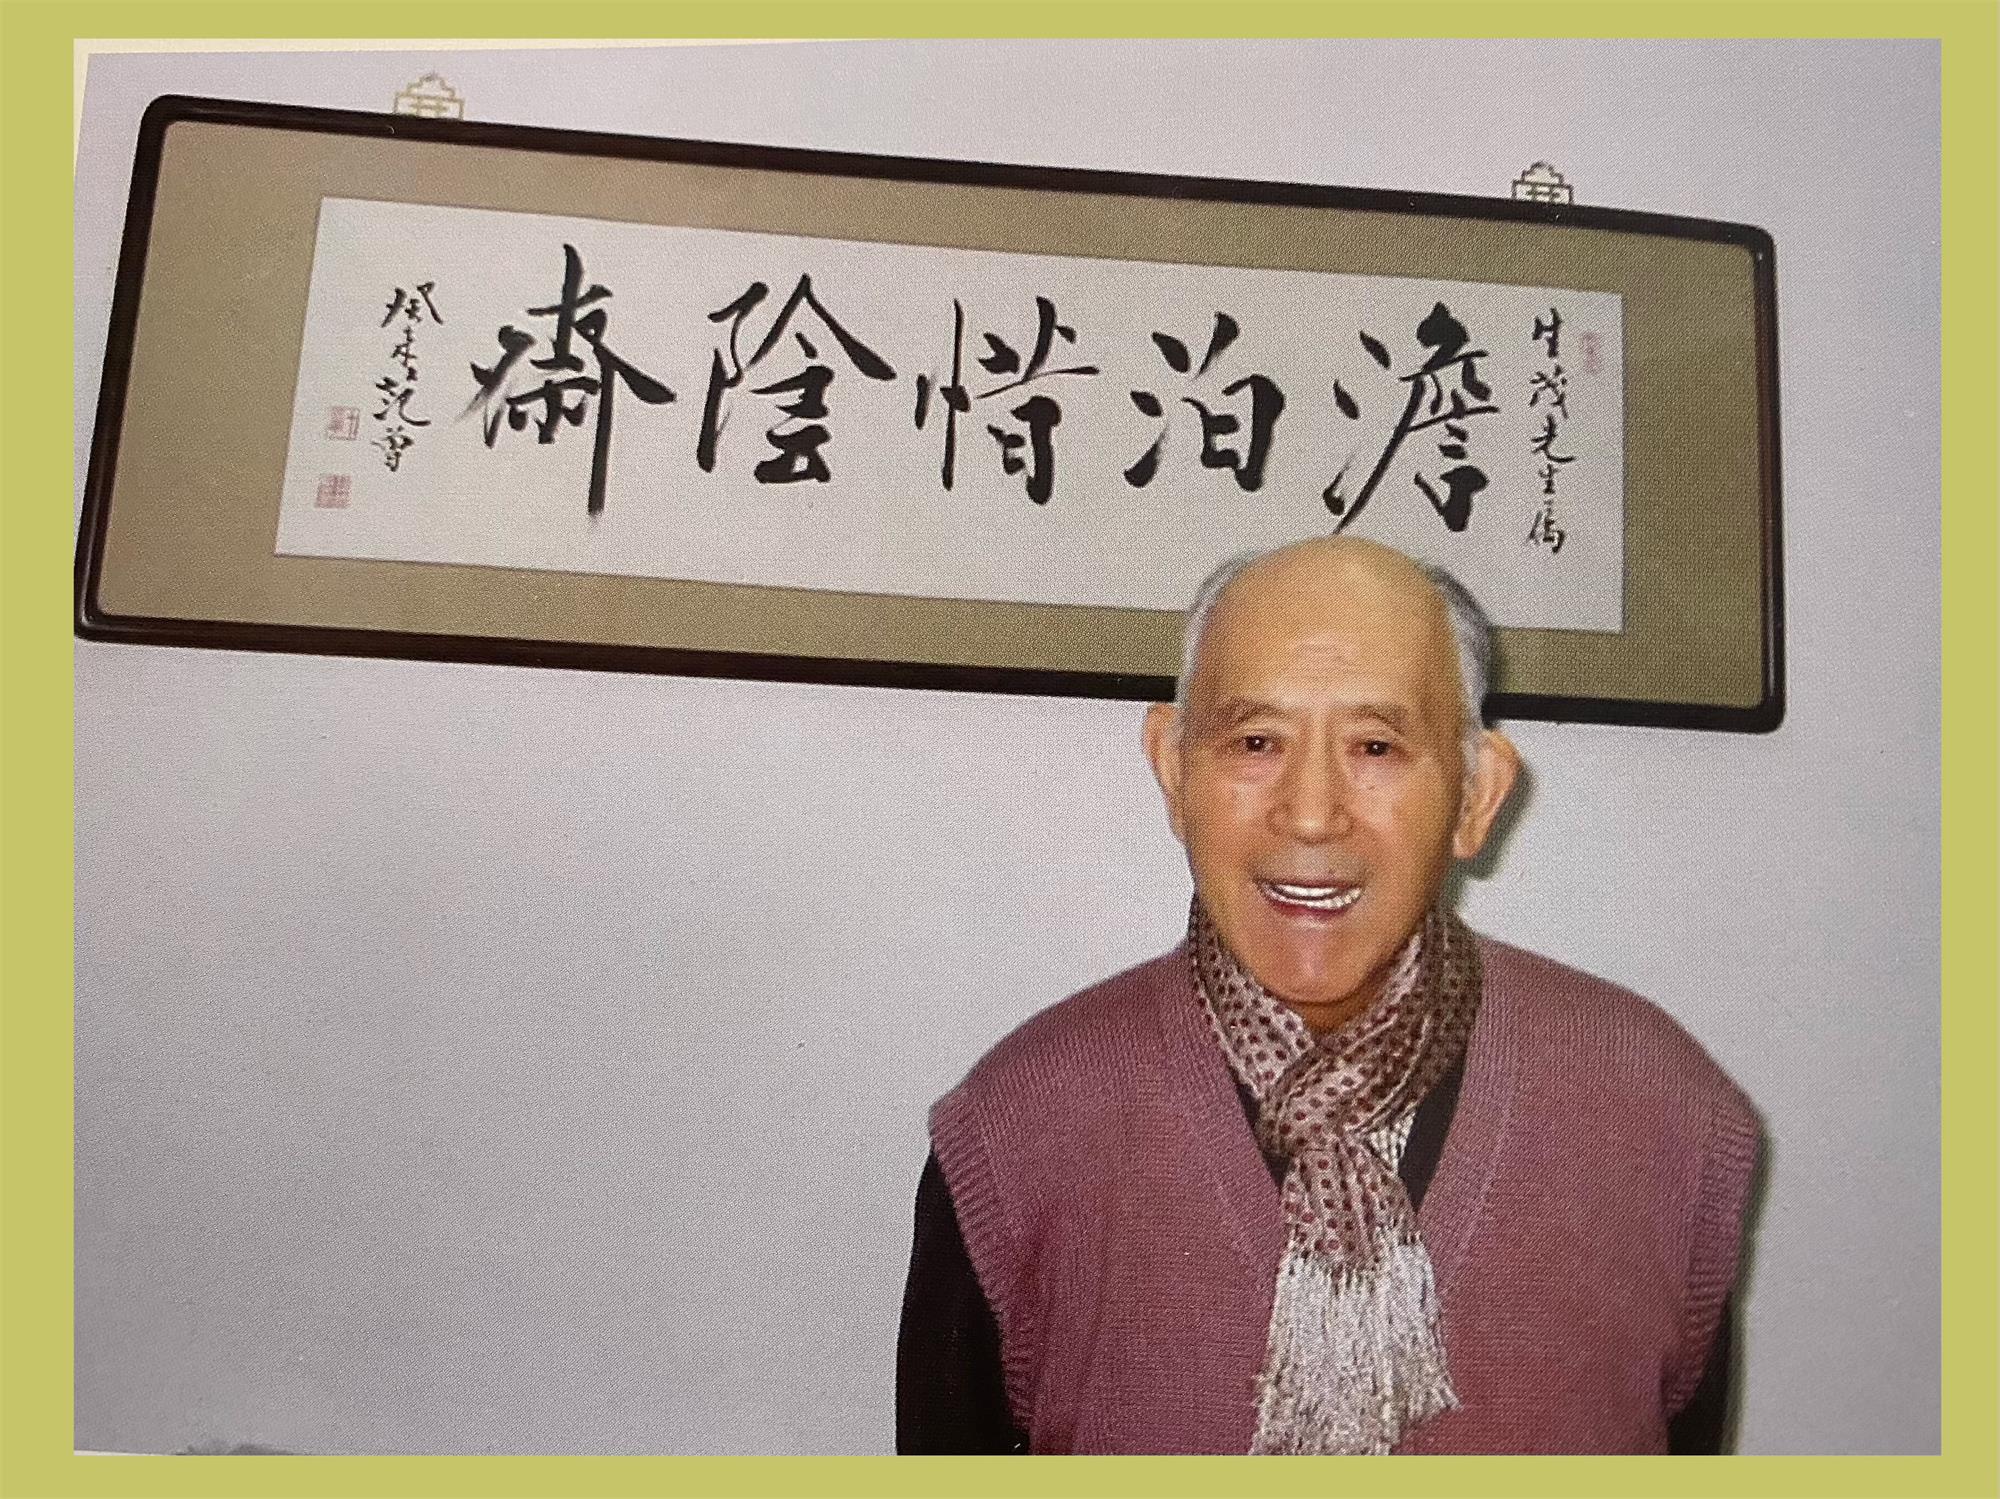 生茂先生属
澹泊惜陰齋
癸未范曾